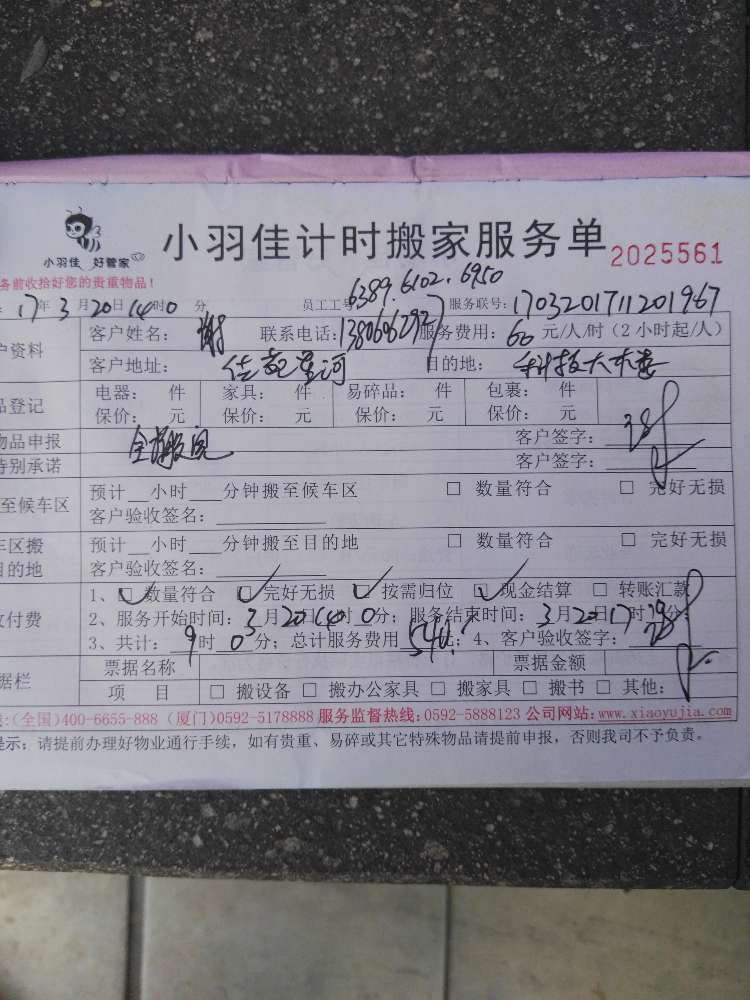 小羽佳 好管家
小羽佳计时搬家服务单 2025561
务前收拾好您的贵重物品!
6389.6102.6950
17年3月20日14时0分 员工工号 服务联号:1703201711201967
户资料 客户姓名:谢 联系电话: 服务费用:60元/人/时(2小时起/人)
客户地址: 目的地:
品登记 电器: 件 家具: 件 易碎品: 件 包裹: 件
保价: 元 保价: 元 保价: 元 保价: 元
物品申报 客户签字:
特别承诺 客户签字:
至候车区 预计__小时___分钟搬至候车区 □ 数量符合 □ 完好无损
客户验收签名:
车区搬 预计__小时___分钟搬至目的地 □ 数量符合 □ 完好无损
目的地 客户验收签名:
1、☑数量符合 ☑完好无损 ☑按需归位 ☑现金结算 □ 转账汇款
收付费 2、服务开始时间:3月20日14时0分;服务结束时间:3月20日17时分;
3、共计:9时0分;总计服务费用540元;4、客户验收签字:
据栏 票据名称 票据金额
项 目 □ 搬设备 □ 搬办公家具 □ 搬家具 □ 搬书 □ 其他:
:(全国)400-6655-888 (厦门)0592-5178888 服务监督热线:0592-5888123 公司网站:www.xiaoyujia.com
提示:请提前办理好物业通行手续,如有贵重、易碎或其它特殊物品请提前申报,否则我司不予负责。